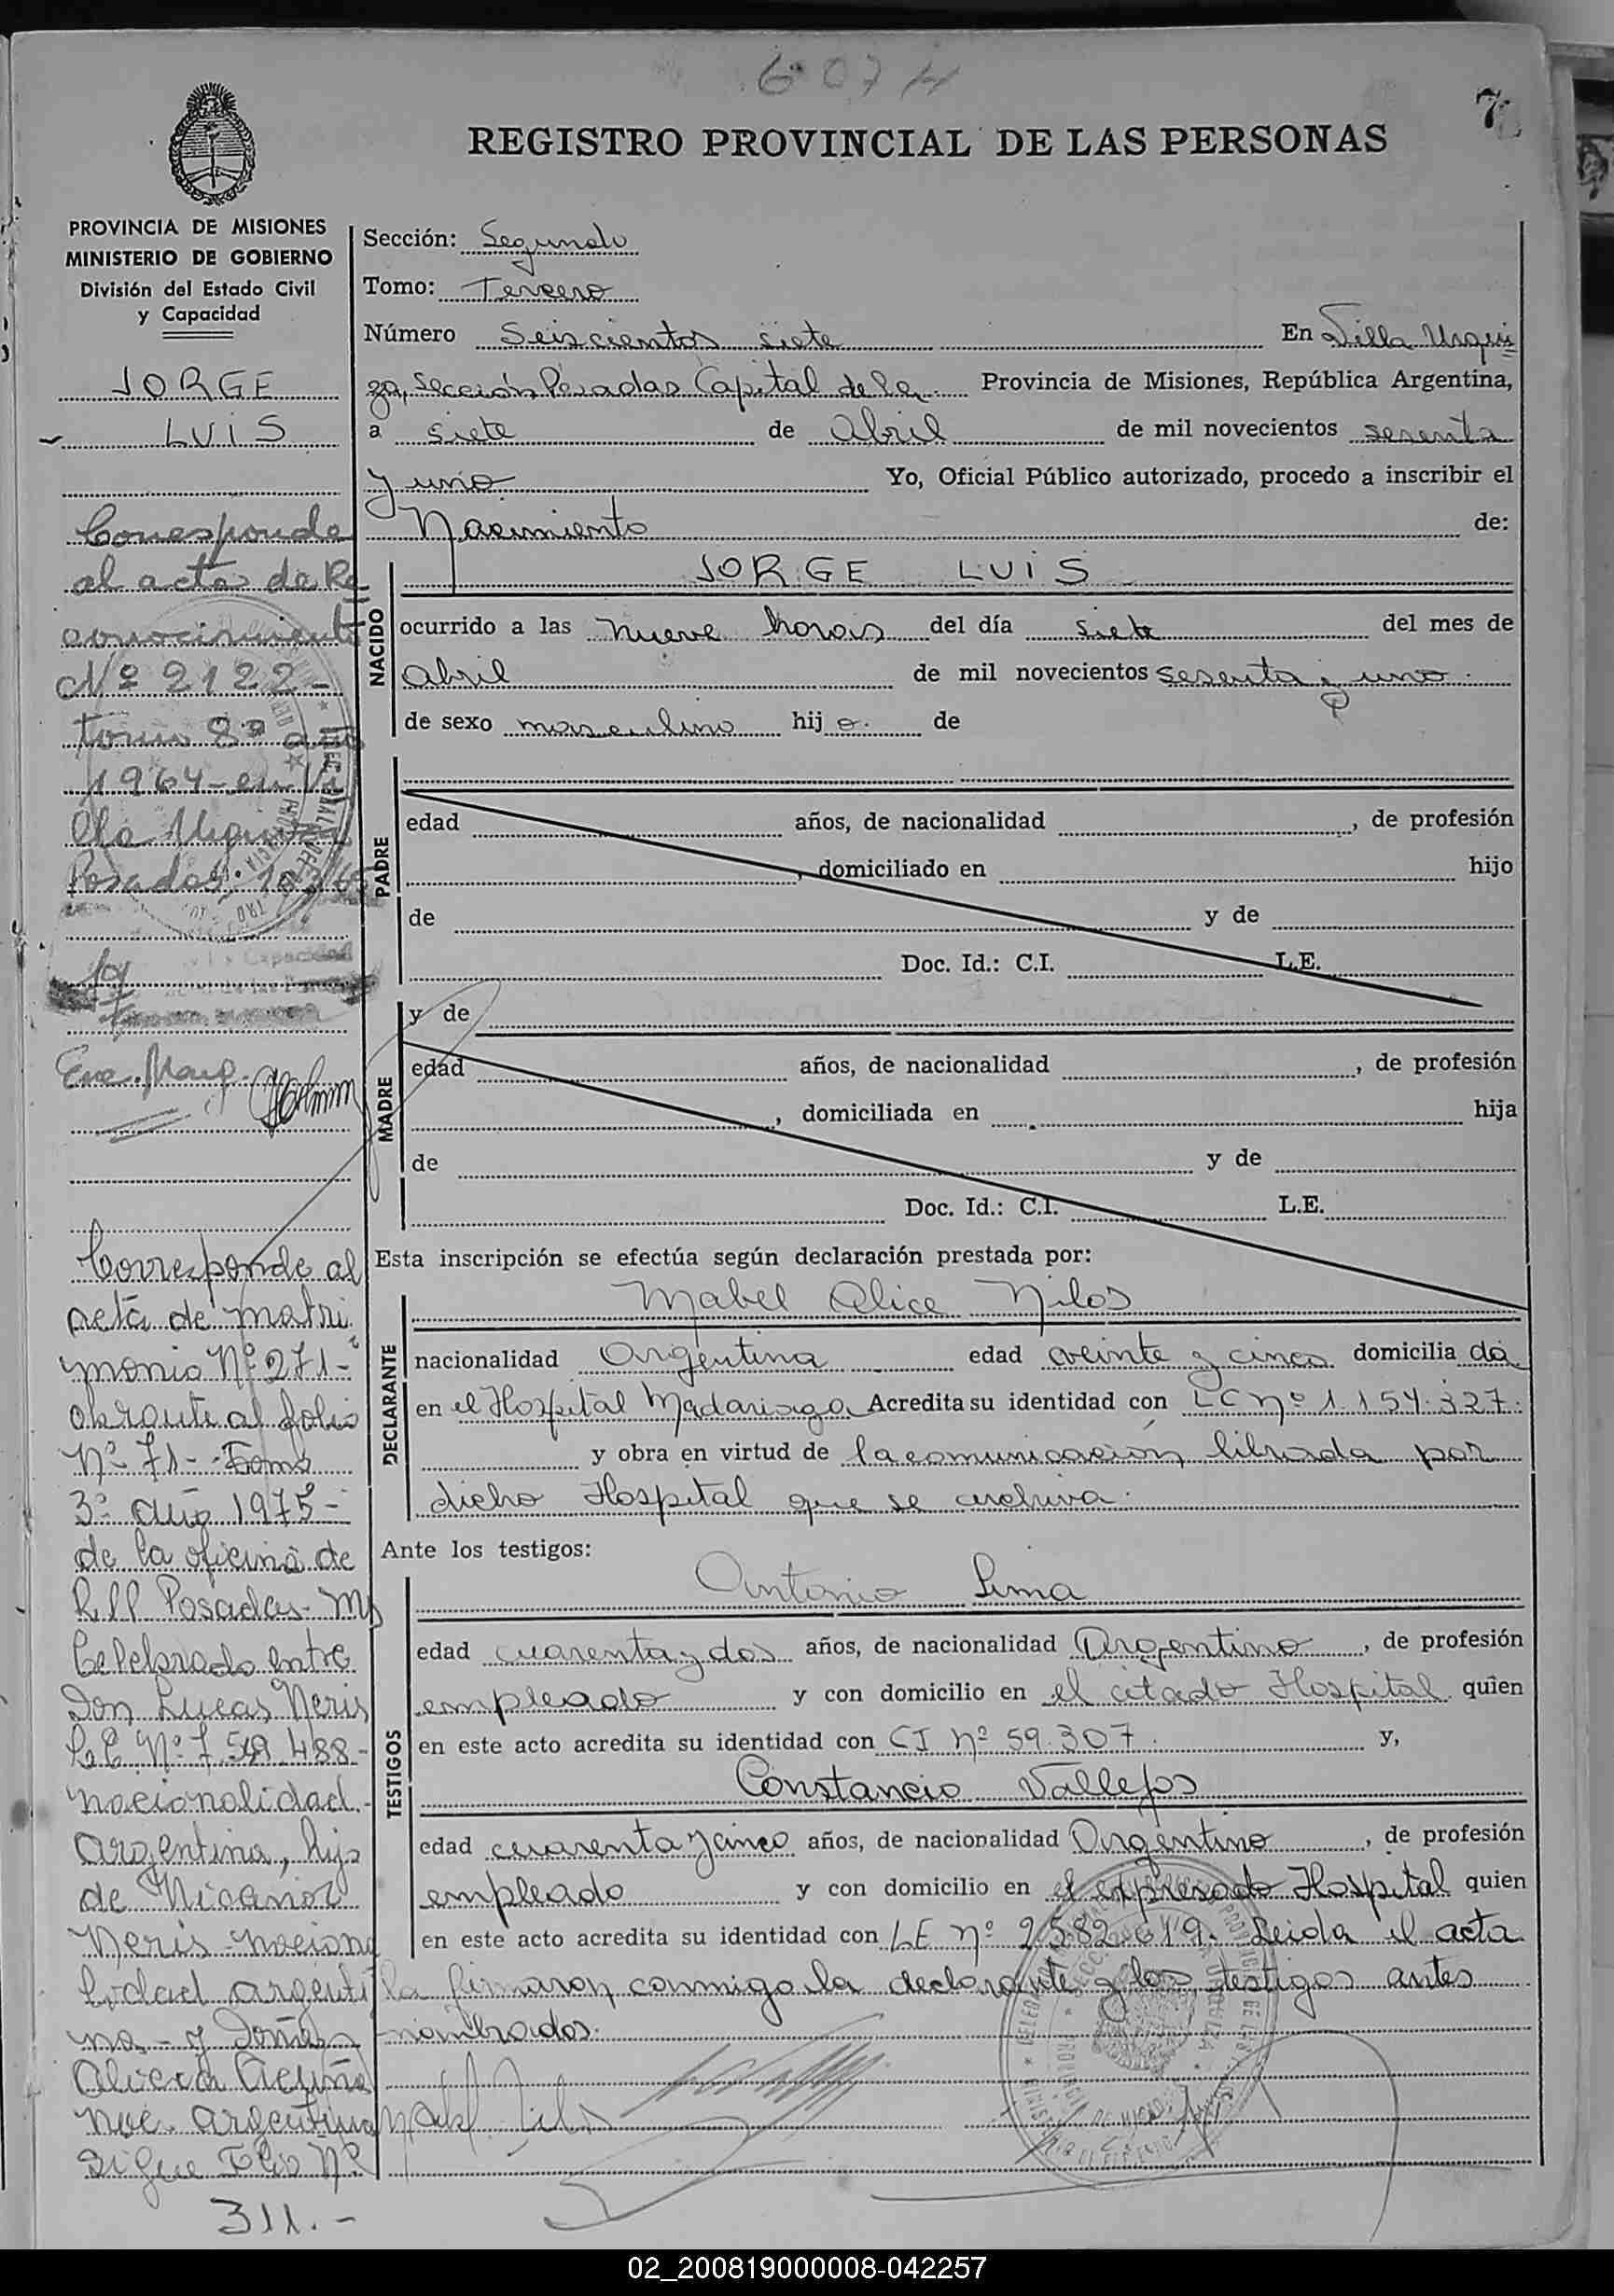 7
REGISTRO PROVINCIAL DE LAS PERSONAS
PROVINCIA DE MISIONES
MINISTERIO DE GOBIERNO
División del Estado Civil
y Capacidad
JORGE
LUIS
Corresponde
al acta de Re
conocimiento
Nº 2122-
tomo 8º año
1964- en Vi
lla Urquiza
Posadas.
Corresponde al
acta de matri
monio Nº 271-
obrante al folio
Nº 71- Tomo
3º año 1975-
de la oficina de
Posadas-
Celebrado entre
Don Lucas Neris
Nº 7.549.488-
nacionalidad
argentina, hijo
de Nicanor
Neris- naciona
lidad argenti
na- y Doña
Acuña
nac. argentina
Sigue Folio Nº
311.-
Sección: Segunda
Tomo: Tercero
Número Seiscientos siete En Villa Urqui
za, Sección Posadas Capital de la Provincia de Misiones, República Argentina,
a siete de Abril de mil novecientos sesenta
y uno Yo, Oficial Público autorizado, procedo a inscribir el
Nacimiento de:
NACIDO
JORGE LUIS
ocurrido a las nueve horas del día siete del mes de
Abril de mil novecientos sesenta y uno.
de sexo masculino hijo. de
PADRE
edad años, de nacionalidad , de profesión
, domiciliado en hijo
de y de
Doc. Id.: C.I. L.E.
MADRE
y de
edad años, de nacionalidad , de profesión
, domiciliada en hija
de y de
Doc. Id.: C.I. L.E.
Esta inscripción se efectúa según declaración prestada por:
DECLARANTE
Mabel Alice Nilos
nacionalidad Argentina edad veinte y cinco domiciliada
en el Hospital Madariaga Acredita su identidad con LC nº 1.154.327.
y obra en virtud de la comunicación librada por
dicho Hospital que se archiva.
Ante los testigos:
TESTIGOS
Antonio Lima
edad cuarenta y dos años, de nacionalidad Argentino, de profesión
empleado y con domicilio en el citado Hospital quien
en este acto acredita su identidad con CI nº 59.307 y,
Constancio Vallejos
edad cuarenta y cinco años, de nacionalidad Argentino, de profesión
empleado y con domicilio en el expresado Hospital quien
en este acto acredita su identidad con LE nº 2.582.619. Leida el acta
la firmaron conmigo la declarante y los testigos antes
nombrados.
02_200819000008-042257